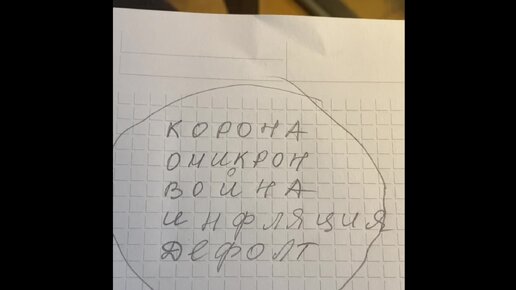 КОРОНА
ОМИКРОН
ВОЙНА
ИНФЛЯЦИЯ
ДЕФОЛТ